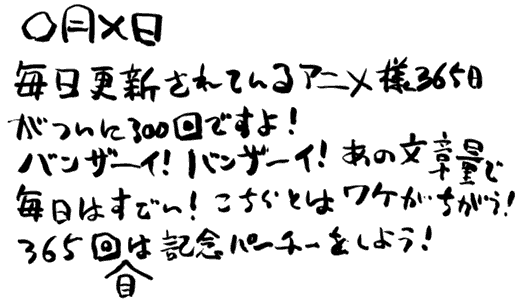 〇月×日
毎日更新されているアニメ様365日
がついに300回ですよ!
バンザーイ!バンザーイ!あの文章量で
毎日はすごい!こちらとはワケがちがう!
365回は記念パーチーをしよう!
目